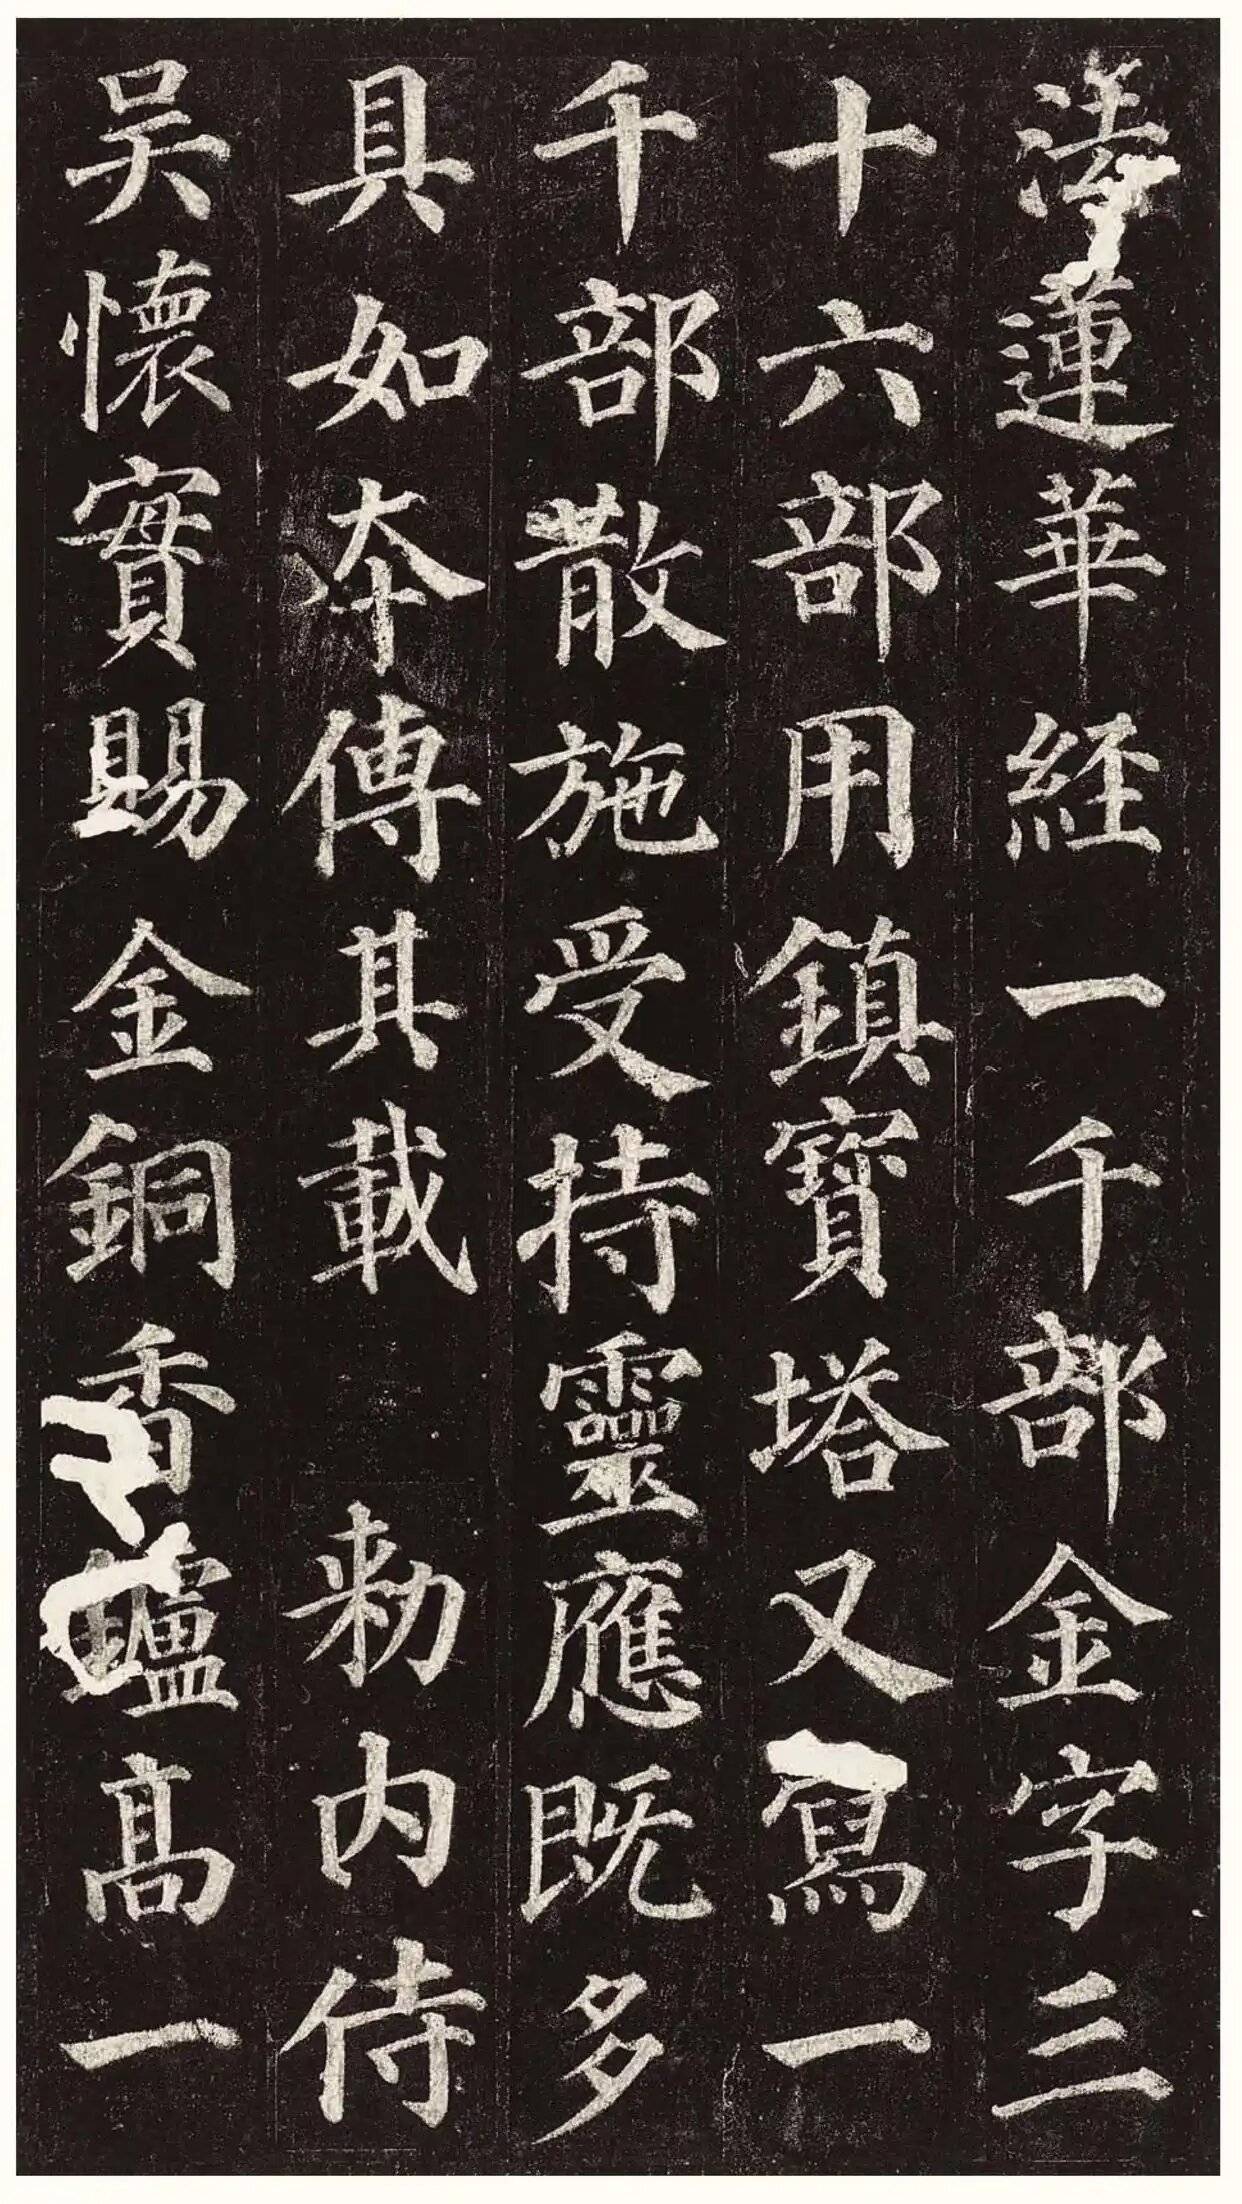 法蓮華経一千部金字三
十六部用鎮寶塔又寫一
千部散施受持靈應既多
具如夲傳其載 勑内侍
吴懐實賜金銅香鑪髙一